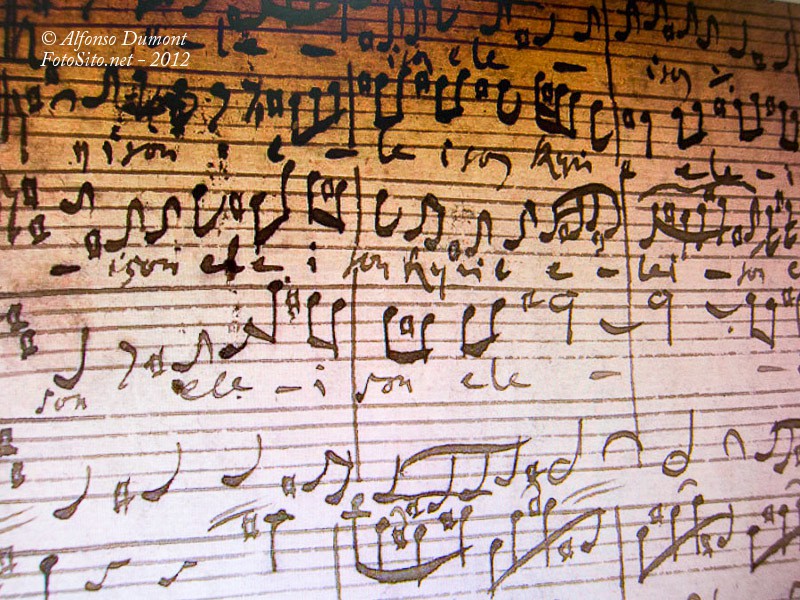 © Alfonso Dumont
FotoSito.net - 2012
ison ele - ison
ison e - le ison Kyri e ele - i
- ison ele i son Kyrie e - lei - son e
son ele - i son ele - -